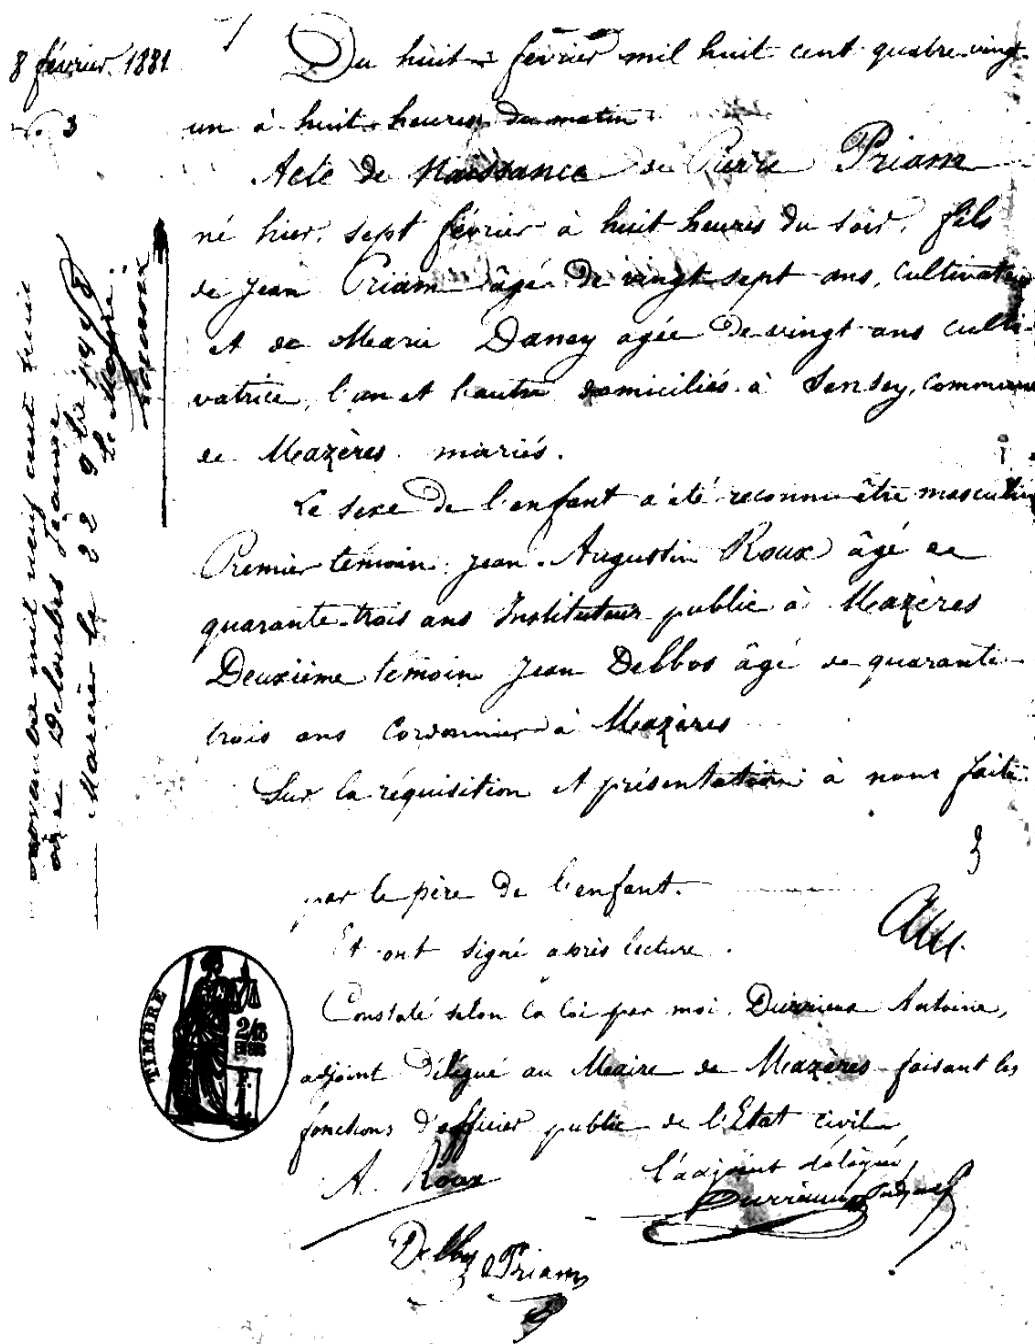 8 février 1881
No. 3
Du huit février mil huit cent quatre vingt
un à huit heures du matin
Acte de Naissance de Pierre Priam
né hier, sept février à huit heures du soir, fils
de Jean Priam âgé de vingt sept ans, cultivateur
et de Marie Daney agée de vingt ans culti-
vatrice, l'un et l'autre domiciliés à Sendey, commune
de Mazères mariés.
Le sexe de l'enfant a été reconnu être masculin
Premier témoin Jean Augustin Roux âgé de
quarante trois ans Instituteur public à Mazères
Deuxième témoin Jean Delbos âgé de quarante
trois ans Cordonnier à Mazères
Sur la réquisition et présentation à nous faite
par le père de l'enfant.
Et ont signé après lecture.
Constaté selon la loi par moi, Durrieux Antoine,
adjoint délégué au Maire de Mazères faisant les
fonctions d'officier public de l'Etat civil
A. Roux
l'adjoint délégué,
Durrieux
Delbos
Priam
novembre mil neuf cent
Jeanne
Mazères le 22 9bre
Le Maire
TIMBRE